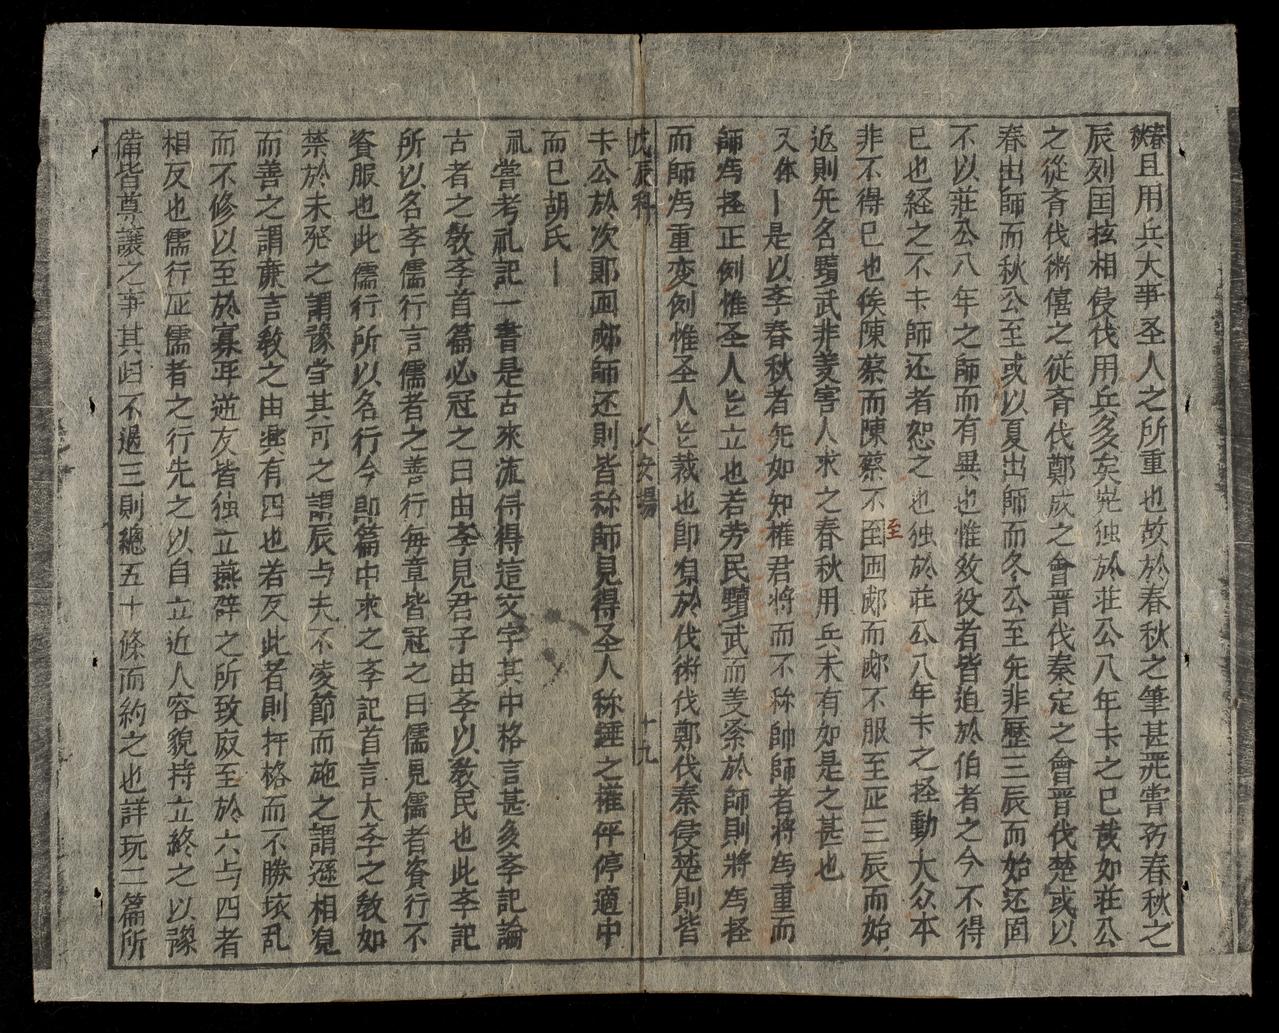 春秋 且用兵大事圣人之所重也故於春秋之筆甚严嘗考春秋之
辰列国互相侵伐用兵多矣宪独於庄公八年卡之已哉如莊公
之從斉伐衛僖之従斉伐鄭成之會晋伐秦定之會晋伐楚或以
春出師而秋公至或以夏出師而冬公至旡非歷三辰而始还固
不以莊公八年之師而有異也惟效役者皆迫於伯者之令不得
已也経之不卡師还者恕之也独於莊公八年卡之投動大众本
非不得已也俟陳蔡而陳蔡不至囲郕而郕不服至正三辰而始
返則旡名黷武非義害人求之春秋用兵未有如是之甚也
又体〡是以李春秋者旡如知権君将而不称帥師者将為重而
師為挃正例惟圣人立也若劳民黷武而姜紊於師則將為挃
而師為重変例惟圣人裁也即观於伐衛伐鄭伐秦侵楚則皆
卡公於次郎囲郕師还則皆称師見得圣人称錘之權伻停適中
而已胡氏〡
礼 嘗考礼記一書是古來流得得這文字其中格言甚多李記論
古者之教李首篇必冠之曰由李見君子由李以教民也此李記
所以名李儒行言儒者之善行每章皆冠之曰儒見儒者資行不
資服也此儒行所以名行今即篇中求之李記首言大李之教如
禁於未發之謂豫当其可之謂辰与夫不凌節而施之謂遜相覌
而善之謂廉言教之由興有四也若反此者則扞格而不勝垓乱
而不修以至於寡咠逆友皆独立燕辟之所致廢至於六与四者
相反也儒行正儒者之行先之以自立近人容貌持立終之以豫
備皆尊讓之事其歸不過三則總五十條而約之也詳玩二篇所
戊辰科
乂安場
十九
至